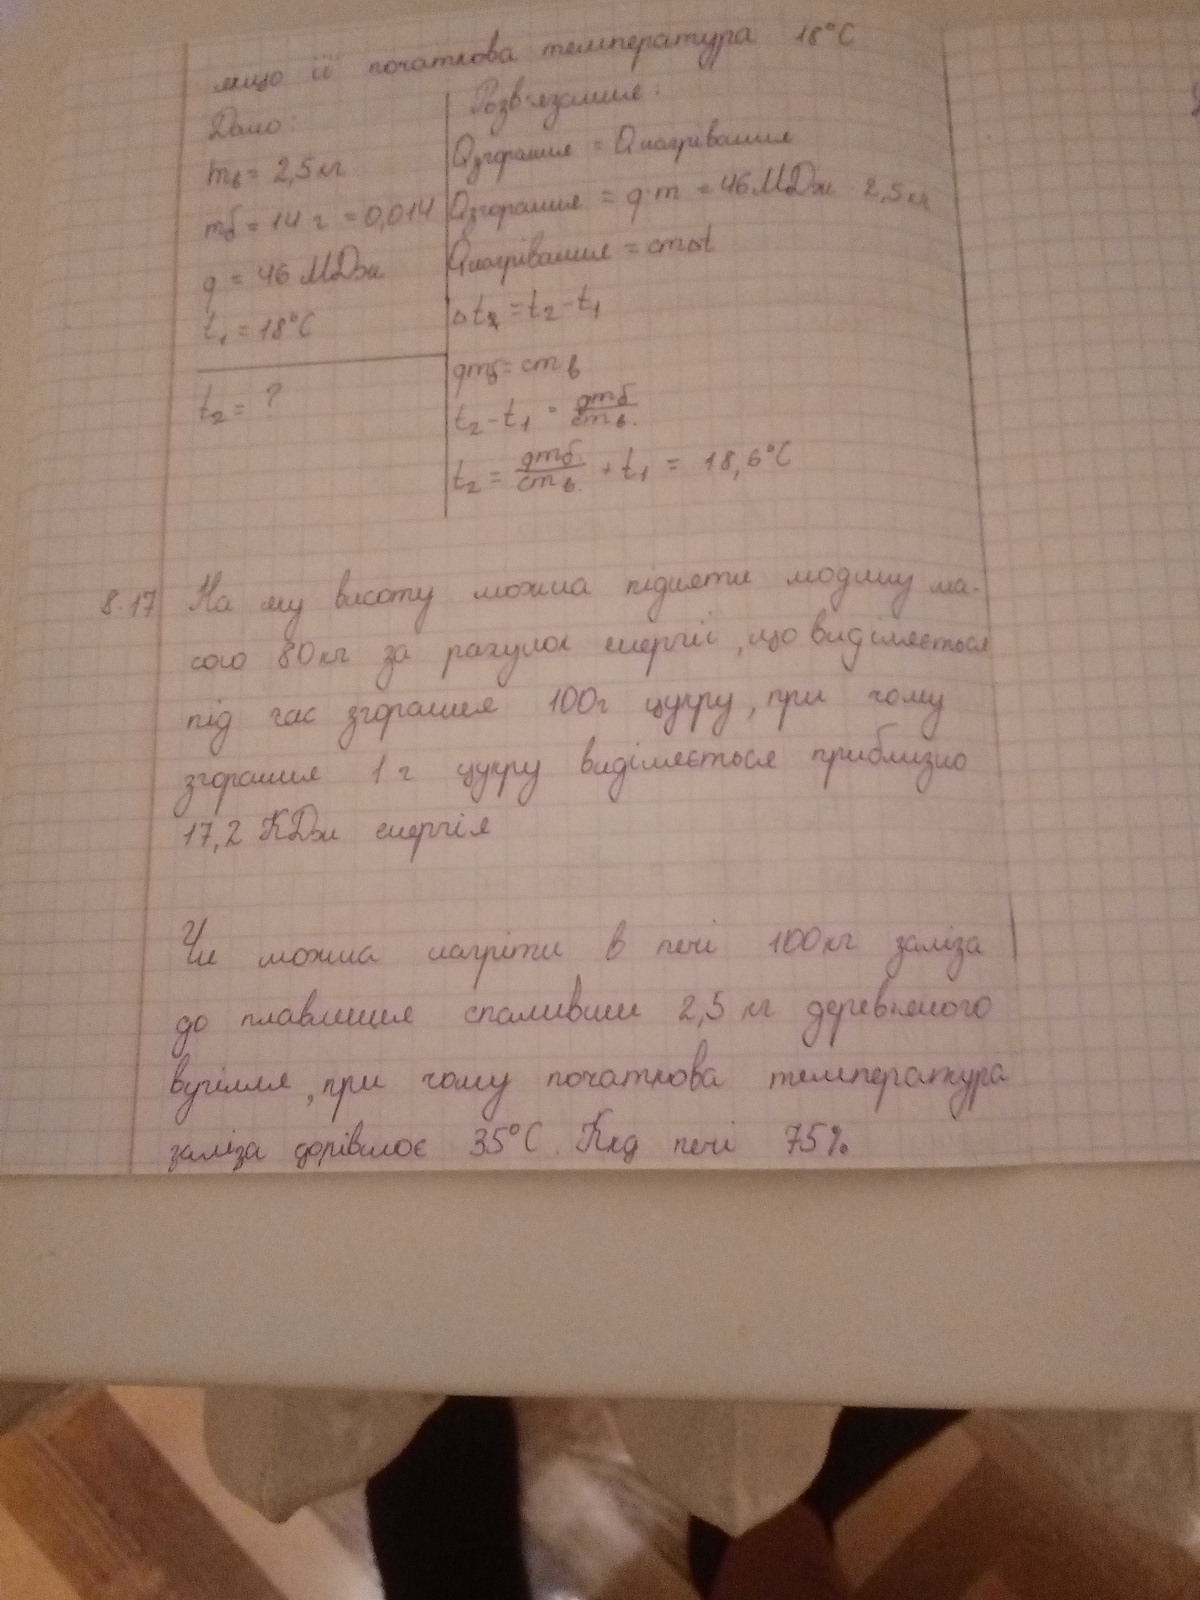 якщо її початкова температура 18°С
Дано:
Розв'язання:
mв = 2,5 кг
Qзгорання = Qнагрівання
mб = 14 г = 0,014
Qзгорання = q·m = 46 МДж 2,5 кг
q = 46 МДж
Qнагрівання = cmΔt
t₁ = 18°С
Δt = t₂ - t₁
t₂ = ?
qmб = cmв
t₂ - t₁ = qmб/cmв.
t₂ = qmб./cmв. + t₁ = 18,6°С
8.17 На яку висоту можна підняти людину ма-
сою 80 кг за рахунок енергії, що виділяється
під час згорання 100г цукру, при чому
згорання 1 г цукру виділяється приблизно
17,2 КДж енергія
Чи можна нагріти в печі 100 кг заліза
до плавлення спаливши 2,5 кг дерев'яного
вугілля, при чому початкова температура
заліза дорівнює 35°С. Ккд печі 75%